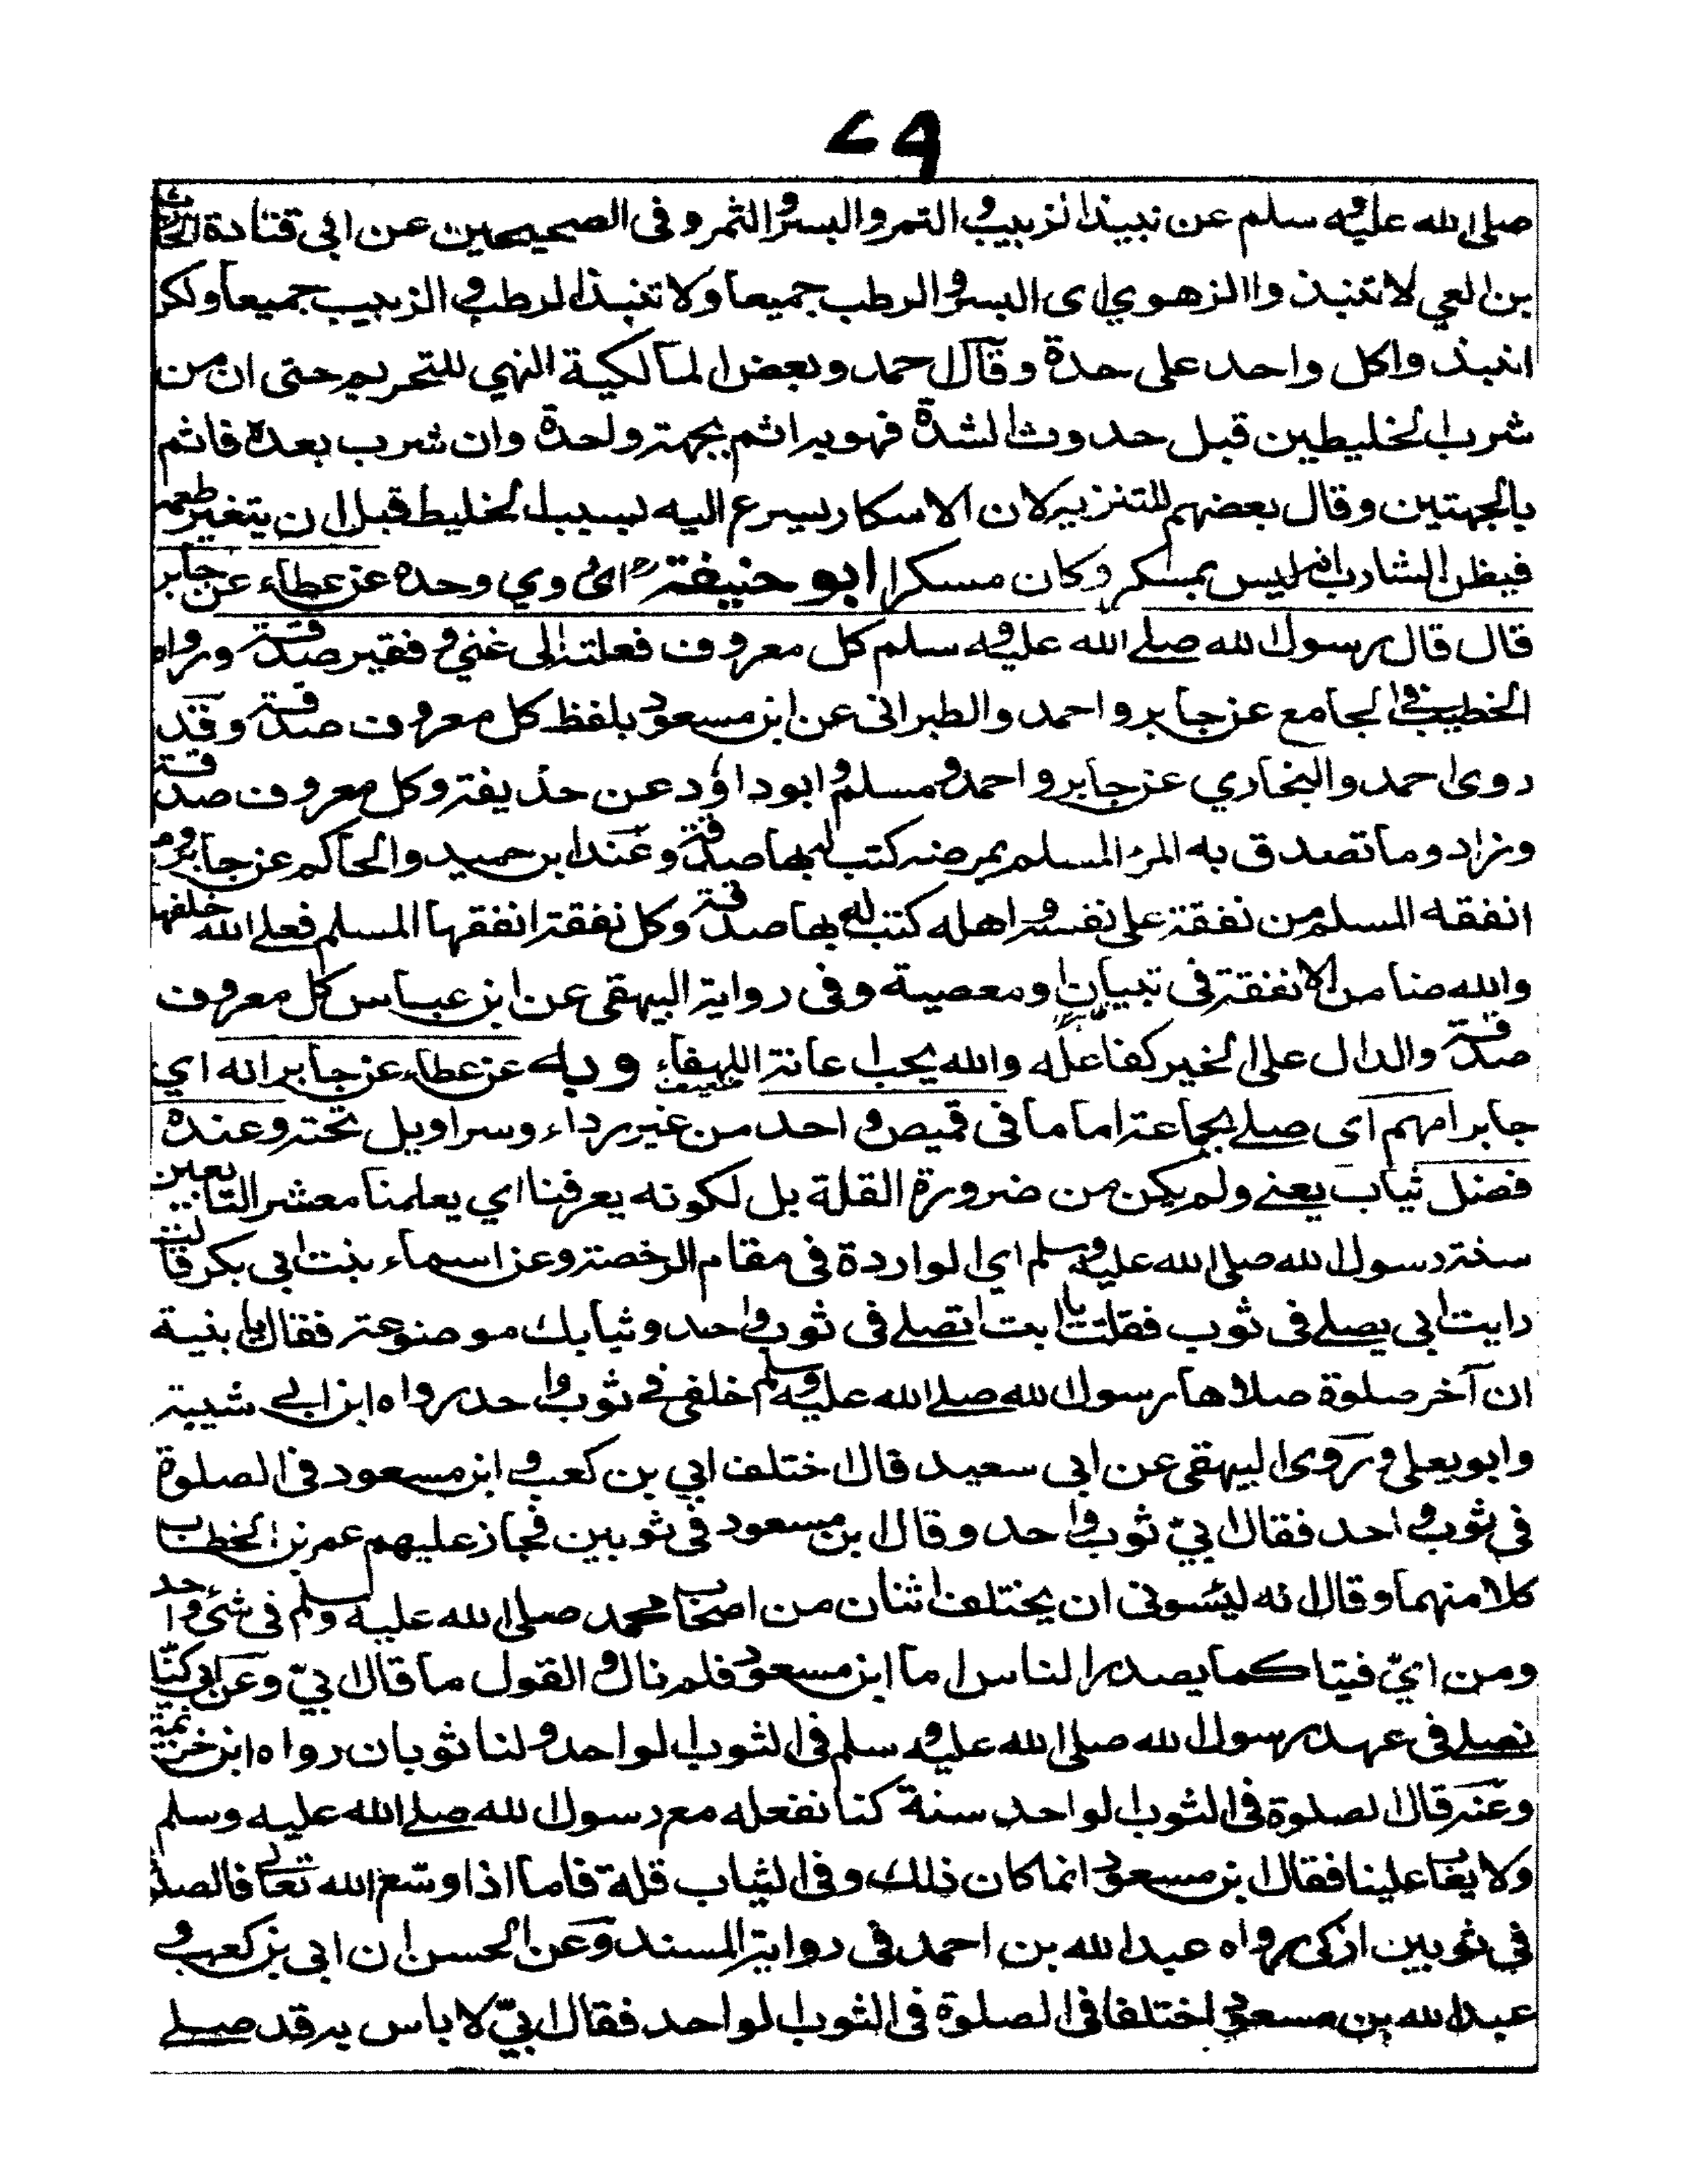 ٧٩
صلى الله عليه وسلم عن نبيذ الزبيب والتمر والبسر والثمر وفى الصحيحين عن ابى قتادة الحارث
بن ربعي لا تنبذوا الزهو اى البسر والرطب جميعا ولا تنبذوا الرطب والزبيب جميعا ولكن
انبذوا كل واحد على حدة وقال احمد وبعض المالكية النهي للتحريم حتى ان من
شرب الخليطين قبل حدوث الشدة فهو يراثم بجهة واحدة وان شرب بعده فاثم
بالجهتين وقال بعضهم للتنزيه لان الاسكار يسرع اليه بسبب الخليط قبل ان يتغير طعمه
فيظن الشارب انه ليس بمسكر وكان مسكرا ابو حنيفة اى روي وحده عن عطاء عن جابر
قال قال رسول الله صلے الله عليه وسلم كل معروف فعلته الى غني وفقير صدقة ورواه
الخطيب فى الجامع عن جابر واحمد والطبرانى عن ابن مسعود بلفظ كل معروف صدقة وقد
روى احمد والبخاري عن جابر واحمد ومسلم وابو داؤد عن حذيفة وكل معروف صدقة
وزاد وما تصدق به المرء المسلم يمرضه كتب له بها صدقة وعند ابن حميد والحاكم عن جابر وما
انفقه المسلم من نفقة على نفسه واهله كتب له بها صدقة وكل نفقة انفقها المسلم فعلے الله خلفها
والله ضامن الا نفقة فى تبيان او معصية وفى رواية البيهقى عن ابن عباس كل معروف
صدقة والدال على الخير كفاعله والله يحب اعانة اللهفاء وبه عن عطاء عن جابر انه اي
جابر امهم اى صلے بجماعة اماما فى قميص واحد من غير رداء وسراويل تحته وعنده
فضل ثياب يعنے ولم يكن من ضرورة القلة بل لكونه يعرفنا اي يعلمنا معشر التابعين
سنة رسول الله صلى الله عليه وسلم اي الواردة فى مقام الرخصة وعن اسماء بنت ابى بكر قالت
رايت ابى يصلے فى ثوب فقلت يا ابت اتصلے فى ثوب واحد وثيابك موضوعة فقال يا بنية
ان آخر صلوة صلاها رسول الله صلے الله عليه وسلم خلفى فے ثوب واحد رواه ابن ابے شيبة
وابو يعلى وروى البيهقى عن ابى سعيد قال اختلف ابي بن كعب وابن مسعود فى الصلوة
فى ثوب واحد فقال ابيّ ثوب واحد وقال ابن مسعود فى ثوبين فجاز عليهم عمر بن الخطاب
كلا منهما وقال انه ليسوءنى ان يختلف اثنان من اصحاب محمد صلى الله عليه وسلم فى شئ واحد
ومن ايّ فتياكما يصدر الناس اما ابن مسعود فلم نال والقول ما قال ابيّ وعن ابي كنا
نصلے فى عهد رسول الله صلى الله عليه وسلم فى الثوب الواحد ولنا ثوبان رواه ابن خزيمة
وعنه قال الصلوة فى الثوب الواحد سنة كنا نفعله مع رسول الله صلے الله عليه وسلم
ولا يعاب علينا فقال ابن مسعود انما كان ذلك وفى الثياب قلة فاما اذا وسع الله تعالى فالصلوة
فى ثوبين ازكى رواه عبد الله بن احمد فى رواية المسند وعن الحسن ان ابى بن كعب و
عبد الله بن مسعود اختلفا فى الصلوة فى الثوب الواحد فقال ابيّ لا باس به قد صلے